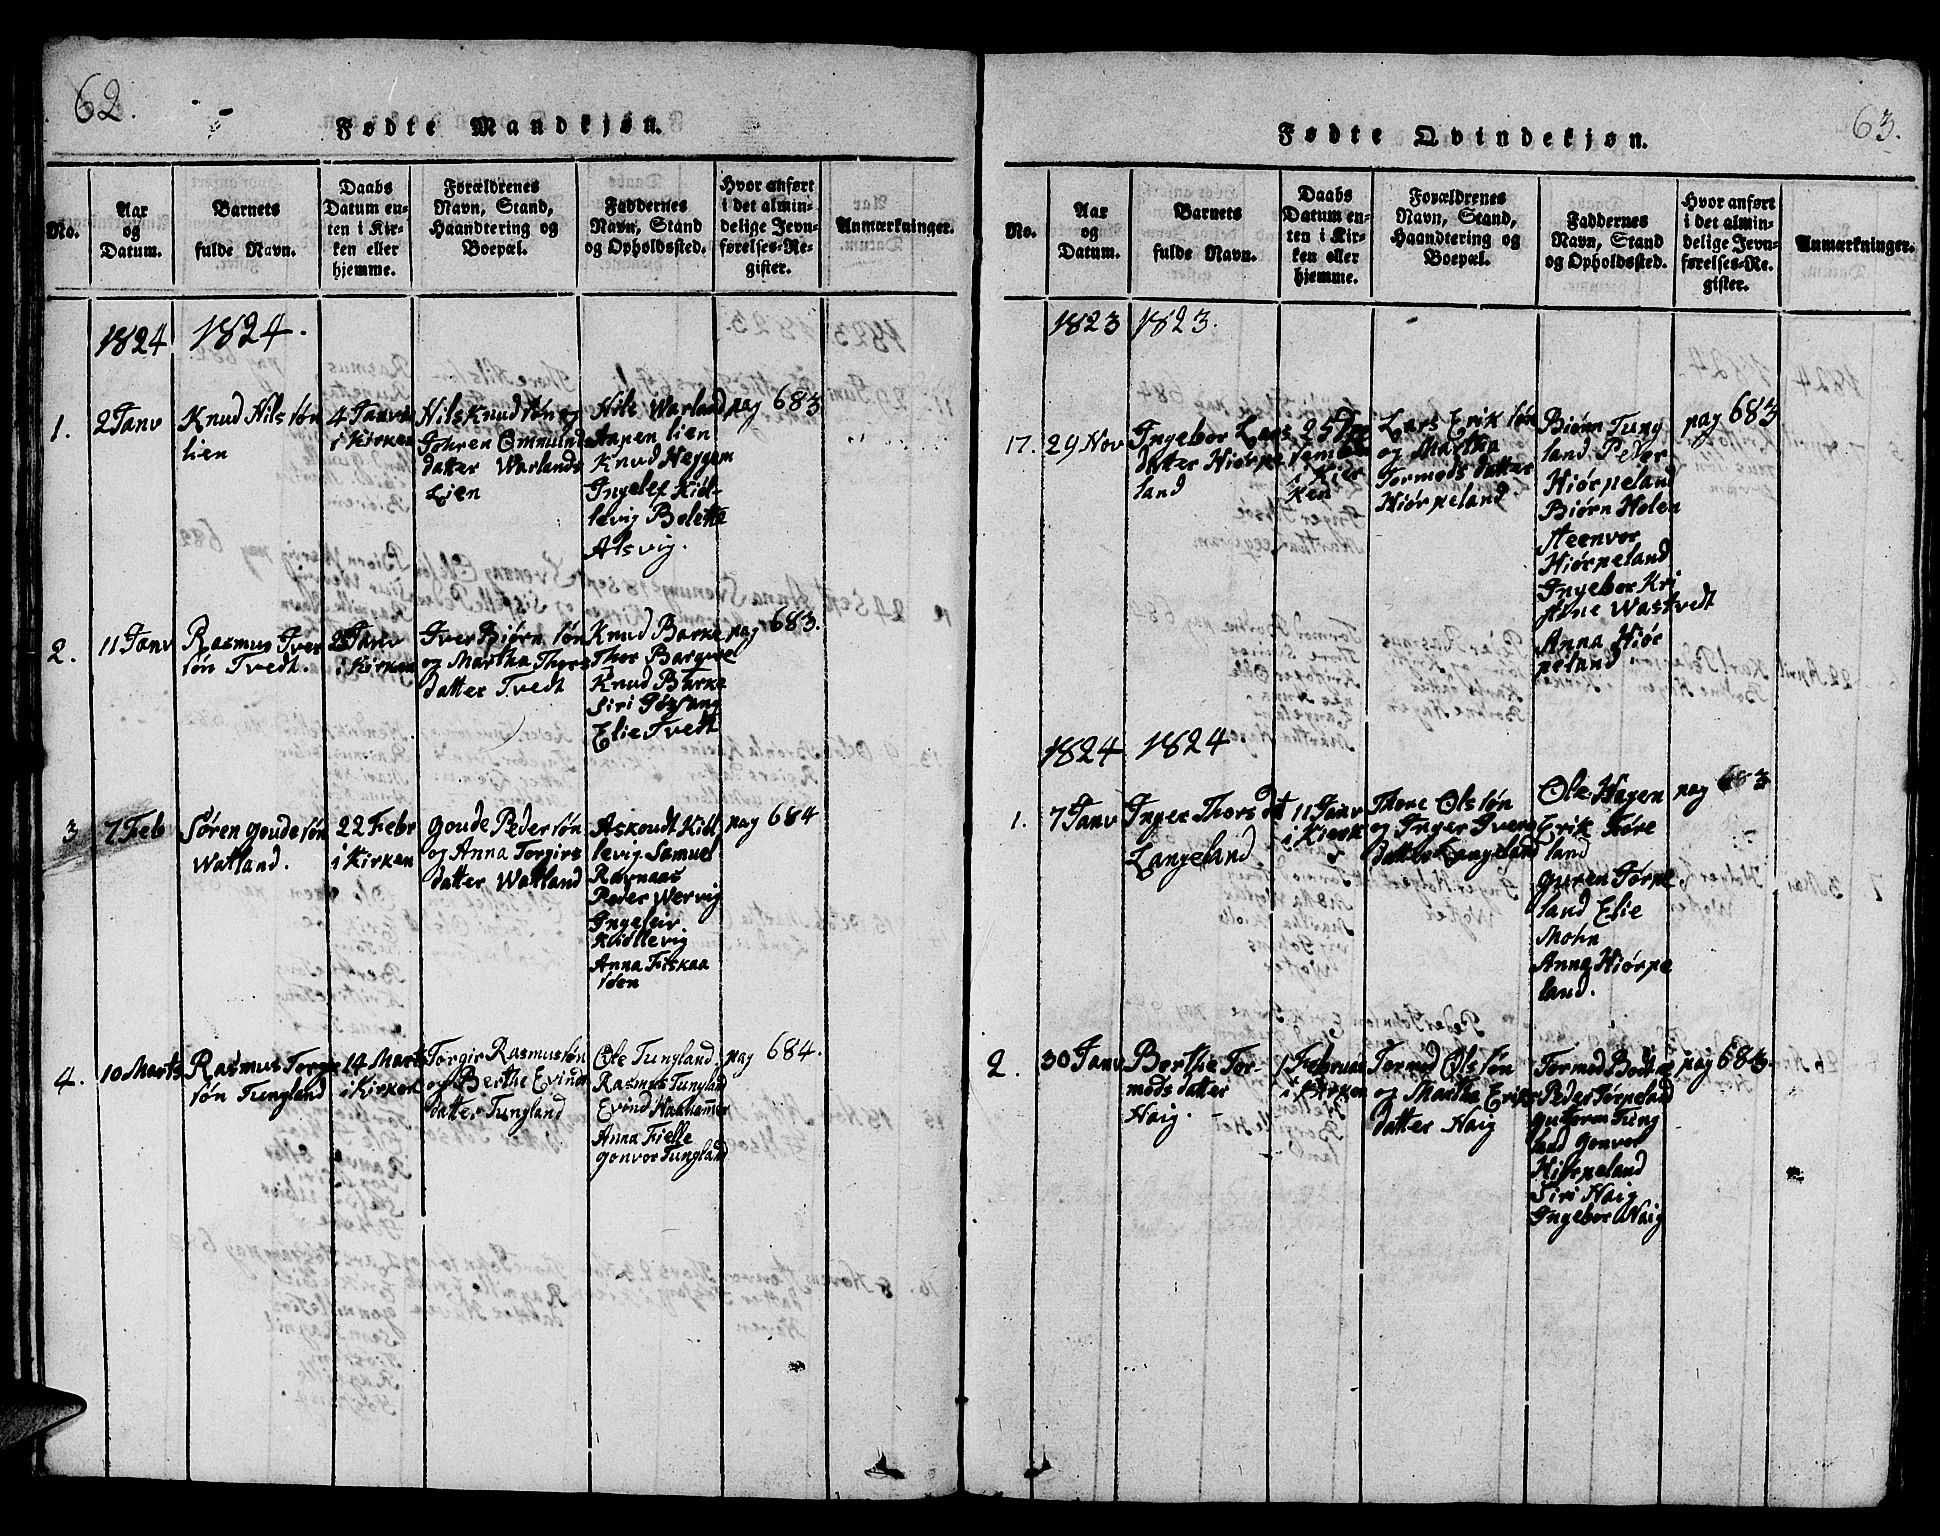 62.
Fødte Mandkjøn.
No.
Aar
og
Datum.
Barnets
fulde Navn.
Daabs
Datum en-
ten i Kir-
ken eller
hjemme.
Forældrenes
Navn, Stand,
Haandtering og
Boepæl.
Faddernes
Navn, Stand
og Opholdssted.
Hvor anført
i det almin-
delige Jevn-
førelses-Re-
gister.
Anmærkninger.
1824
1824.
1.
2 Janv
Knud Nils søn
lien
4 Janv
i Kirken
Nils Knud søn og
datter Warlands
Lien
Nils Warland
Aspen lien
Knud Heggem
Ingelef Kiøl-
levig Belette
Alsvig.
pag 683
2.
11 Janv
Rasmus Iver
søn Tvedt.
Janv
i Kirken
Iver Biørn søn
og Martha Thors
datter Tvedt
Knud Barke
Thor Bargvel
Knud Barke
Siri
Elie Tvedt
pag 683.
3
7 Feb
Søren Goude søn
Watland.
22 Febr
i Kirken
Goude Peder søn
og Anna Torgirs
datter Watland
Askoudt Kiøl
levig Samuel
Ravnaas
Peder Wervig
Ingeleiv
Kiøllevig
Anna Fiskaa
søen
pag 684
4.
10 Marts
Rasmus Torge
søn Tungland
14 Marts
i Kirken
Torgir Rasmus søn
og Berthe Evinds
datter Tungland
Ole Tungland.
Rasmus Tungland
Evind Haahammer
Anna Fielle
Gonvor Tungland
pag 684.
63.
Fødte Qvindekjøn.
No.
Aar
og
Datum.
Barnets
fulde Navn.
Daabs
Datum en-
ten i Kir-
ken eller
hjemme.
Forældrenes
Navn, Stand,
Haandtering og
Boepæl.
Faddernes
Navn, Stand
og Opholdssted.
Hvor anført
i det almin-
delige Jevn-
førelses-Re-
gister.
Anmærkninger.
1823
1823.
17.
29 Nov
Ingebor Lars
datter Hiørpe
land
25
i Kier
ken
Lars Erik søn
og Martha
Tormods datter
Hiørpeland
Biørn Tung
land Peder
Hiørpeland
Biørn Holen
Steenvor
Hiørpeland
Ingebor Kri
stine Wastvedt
Anna Hiør
peland
pag 683
1824
1824.
1.
7 Janv
Inger Thors dt
Langeland
11 Janv
i Kierk
Thore Ols søn
og Inger Ivers
datter Langeland
Ole Hagen
Erik Tøre
land
Guren Tørpe
land Elie
Mohn
Anna Hiørpe
land.
pag 683
2.
30 Janv
Berthe Tor-
mods datter
Haig.
1 Februar
i Kirken
Tormod Ols søn
og Martha Eriks
datter Haig
Tormod Bodtæ
Peder Tørpeland
Gutorm Tung
land Gonvor
Hiørpeland
Siri Haig
Ingebor Haig
pag 683.